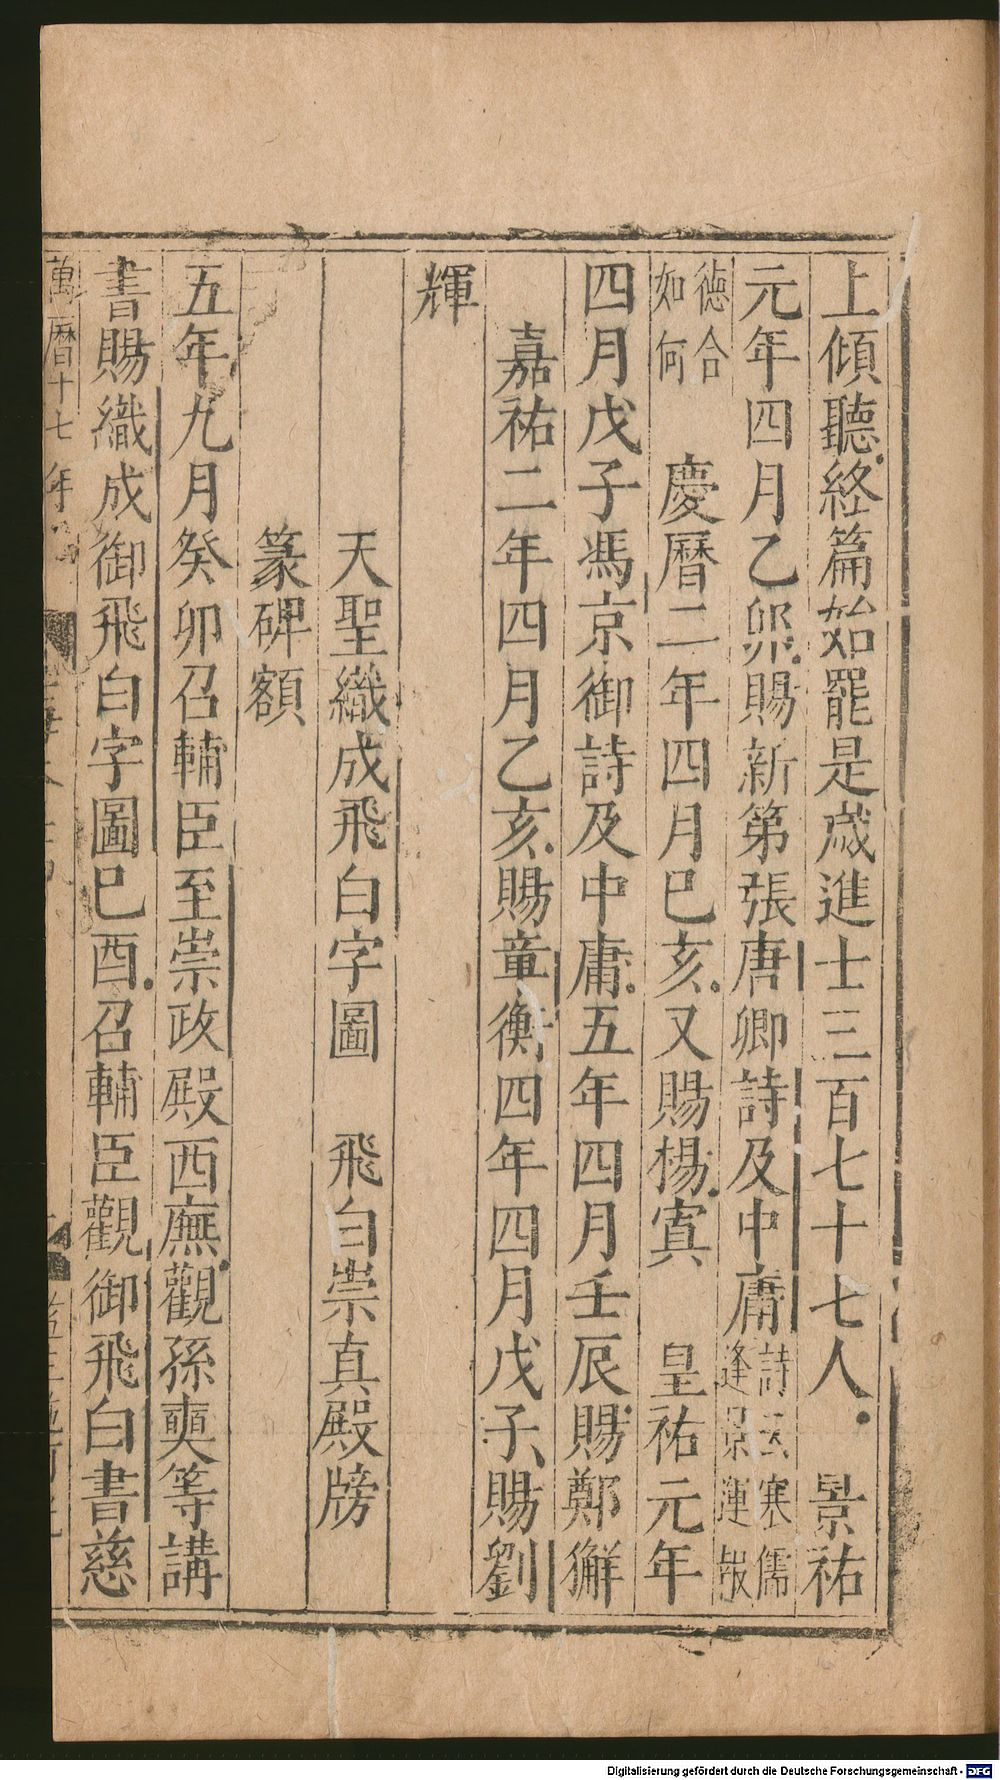 上傾聽終篇始罷是歲進士三百七十七人 景祐
元年四月乙卯賜新第張唐卿詩及中庸詩云寒儒逢景運報
德合如何 慶曆二年四月巳亥又賜楊寘 皇祐元年
四月戊子馮京御詩及中庸五年四月壬辰賜鄭獬
嘉祐二年四月乙亥賜章衡四年四月戊子賜劉
輝
天聖織成飛白字圖 飛白崇真殿牓
篆碑額
五年九月癸卯召輔臣至崇政殿西廡觀孫奭等講
書賜織成御飛白字圖巳酉召輔臣觀御飛白書慈
萬曆十七年
Digitalisierung gefördert durch die Deutsche Forschungsgemeinschaft - DFG